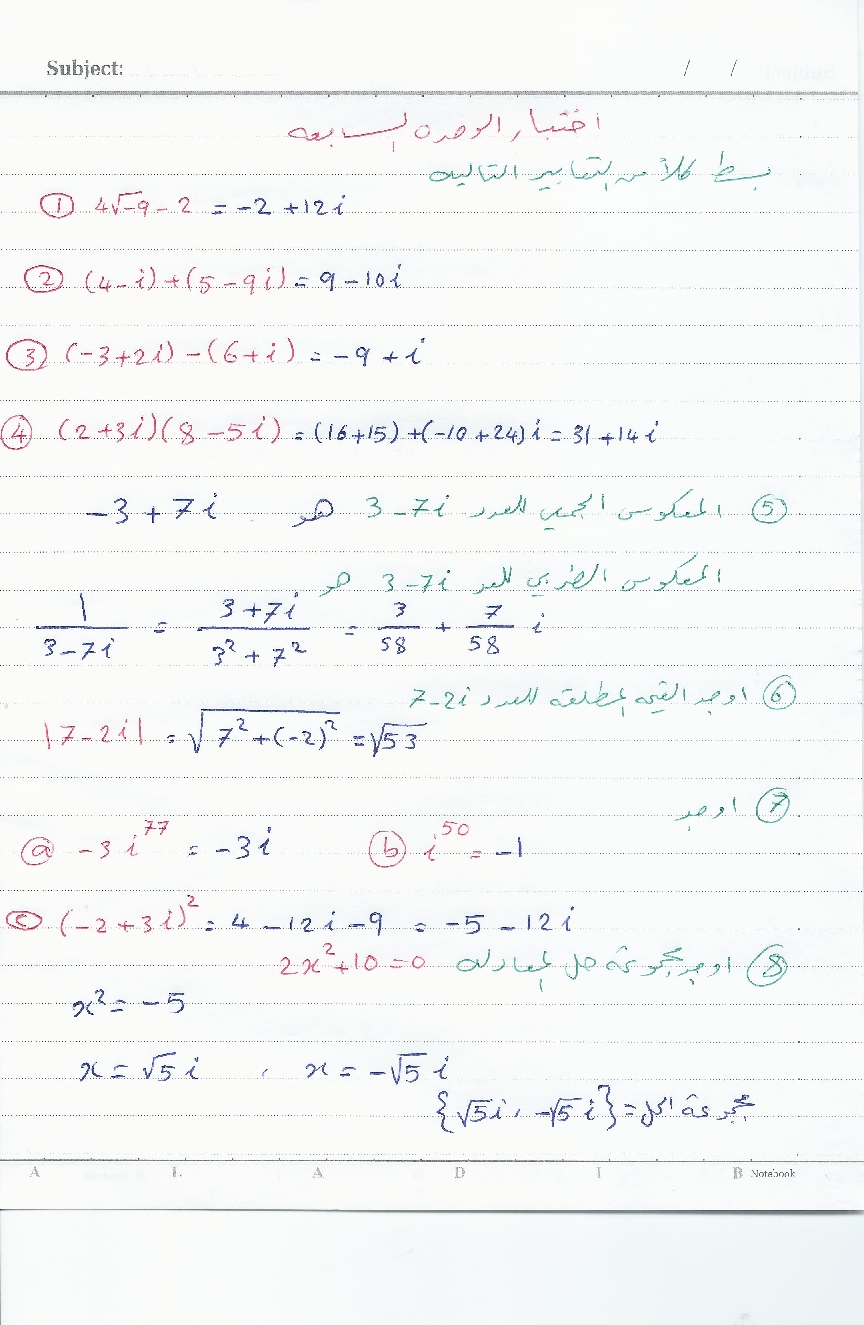 Subject: / /
اختبار الوحدة السابعه
بسط كلاً من التعابير التاليه
① 4√-9 - 2 = -2 + 12i
② (4 - i) + (5 - 9i) = 9 - 10i
③ (-3 + 2i) - (6 + i) = -9 + i
④ (2 + 3i)(8 - 5i) = (16 + 15) + (-10 + 24)i = 31 + 14i
⑤ المعكوس الجمعي للعدد 3 - 7i هو -3 + 7i
المعكوس الضربي للعدد 3 - 7i هو
1/(3 - 7i) = (3 + 7i)/(3² + 7²) = 3/58 + 7/58 i
⑥ اوجد القيمة المطلقه للعدد 7 - 2i
|7 - 2i| = √(7² + (-2)²) = √53
⑦ اوجد
ⓐ -3i⁷⁷ = -3i ⓑ i⁵⁰ = -1
ⓒ (-2 + 3i)² = 4 - 12i - 9 = -5 - 12i
⑧ اوجد مجموعة حل المعادله 2x² + 10 = 0
x² = -5
x = √5 i , x = -√5 i
مجموعة الحل = {√5 i , -√5 i}
A L A D I B Notebook